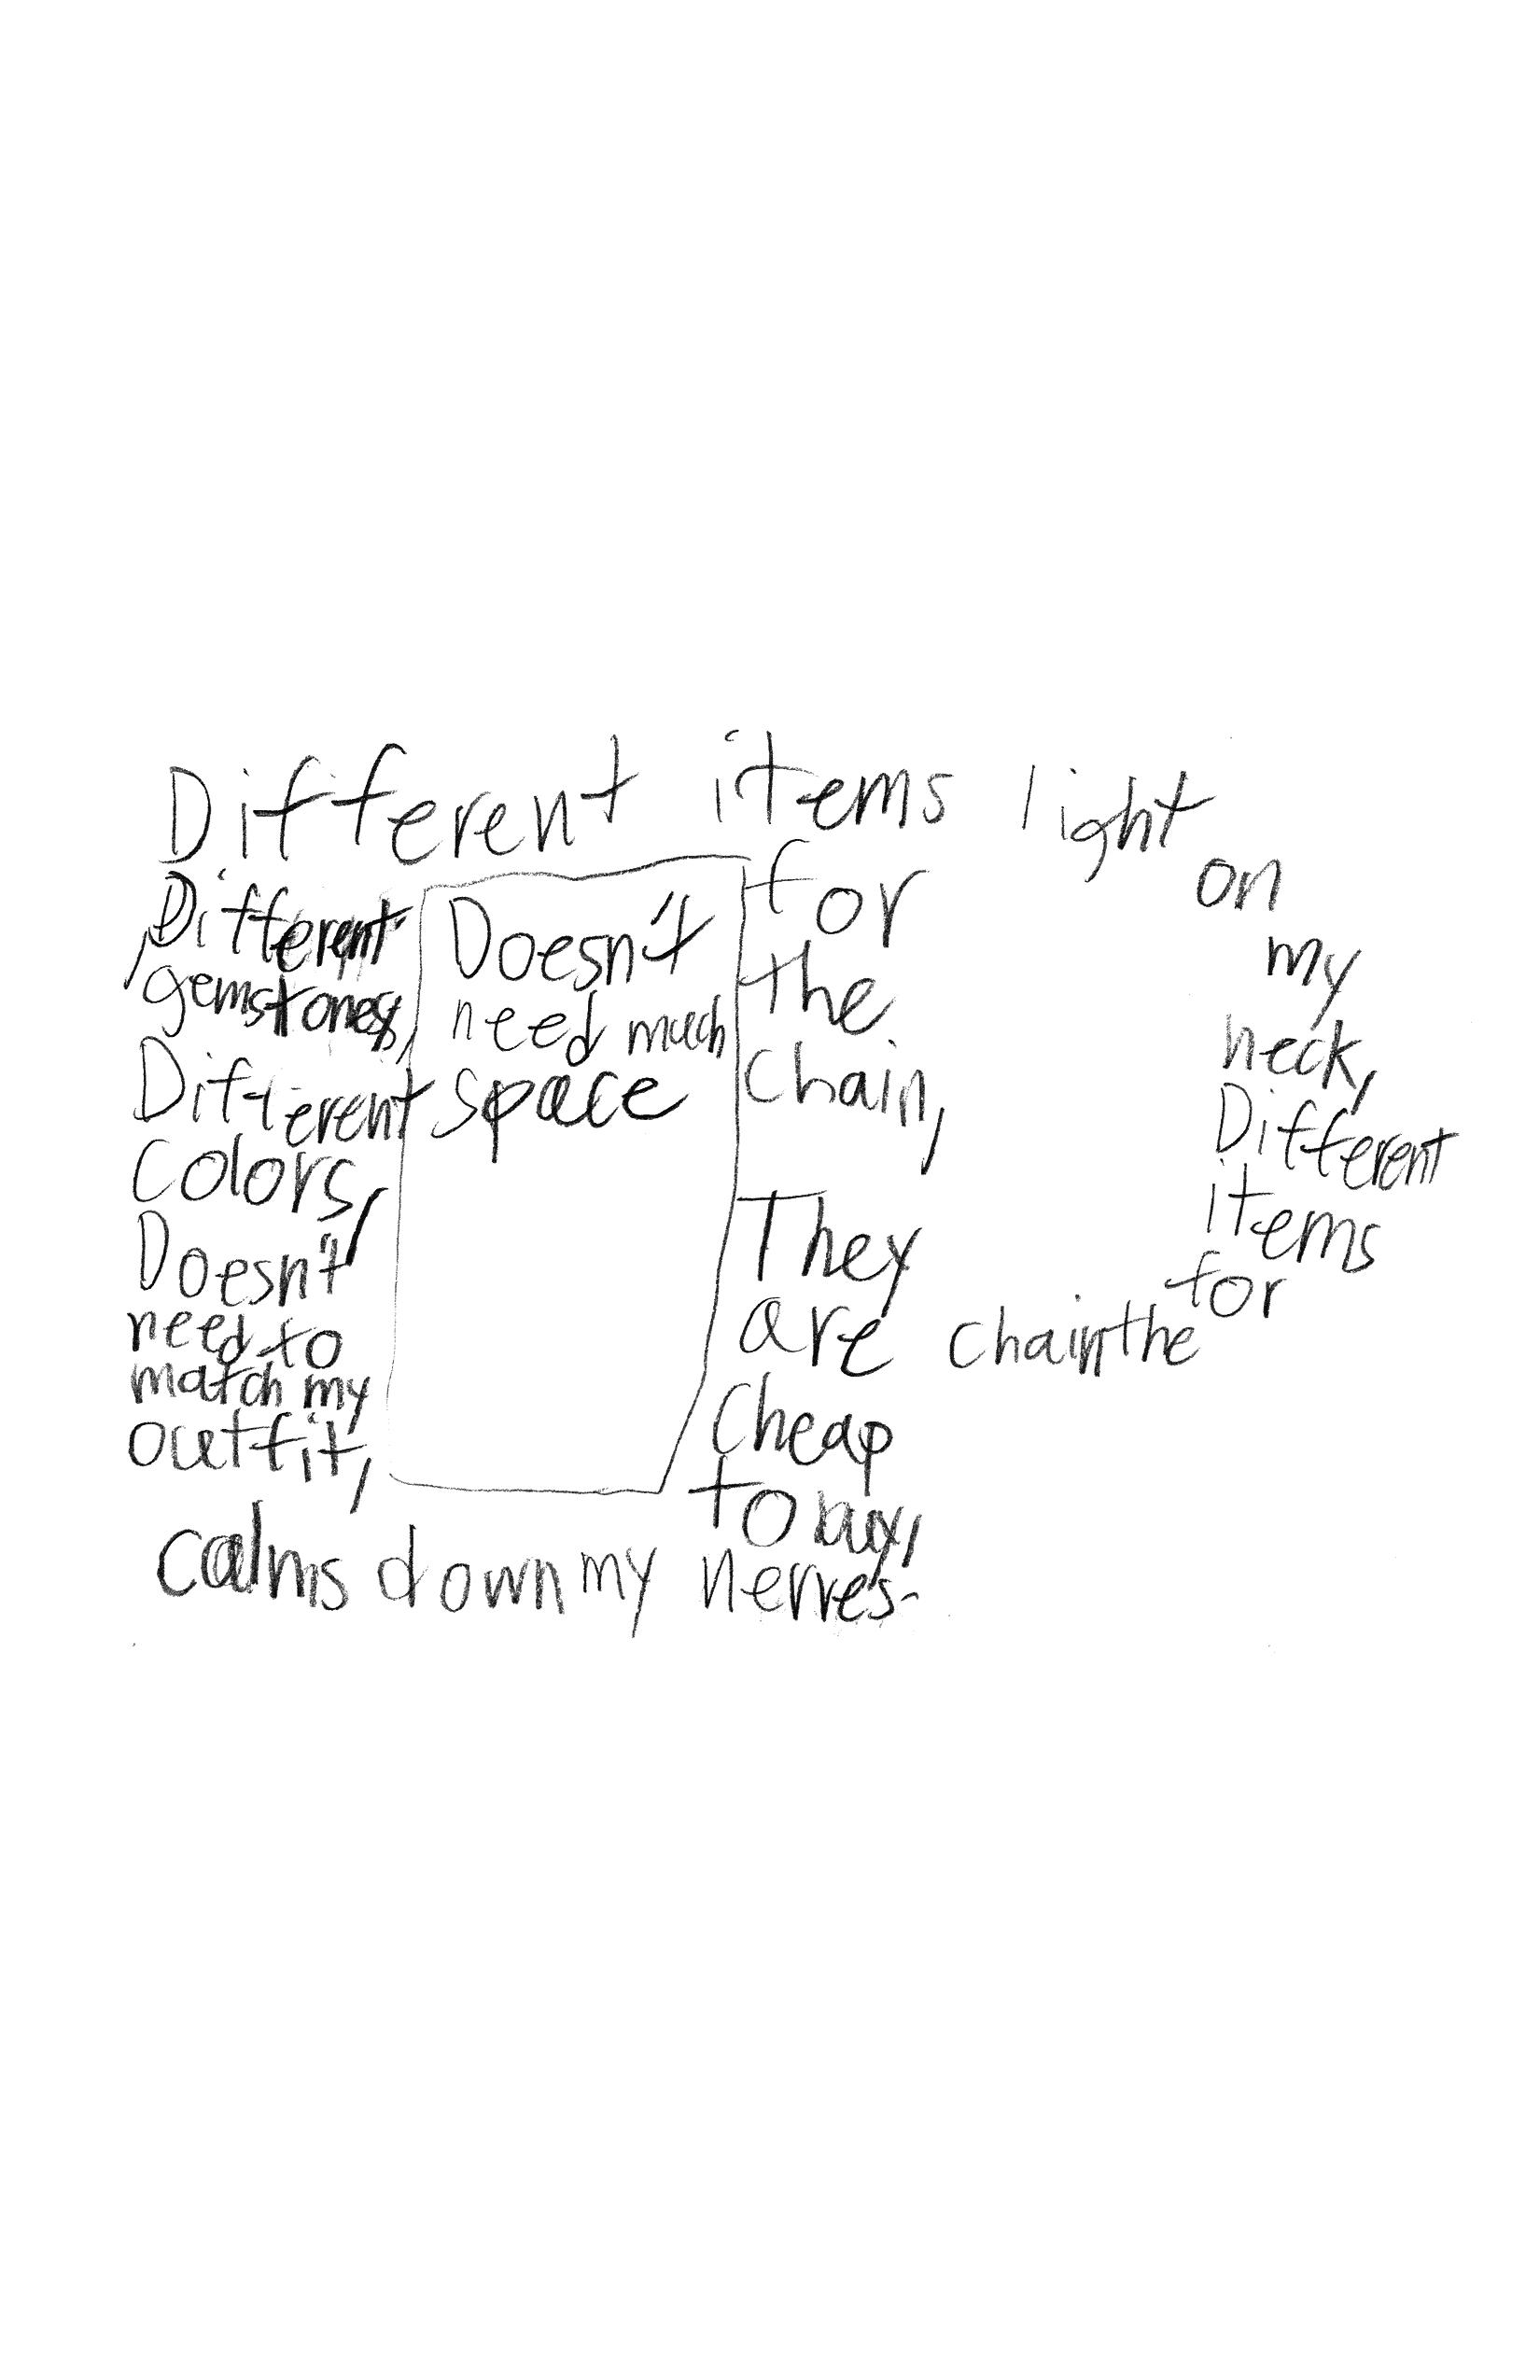 Different items
for
the
chain,
They
are
cheap
to buy,
Different
gemstones,
Different
colors,
Doesn't
need to
match my
outfit,
calms down my nerves.
Doesn't
need much
space
light
on
my
neck,
Different
items
for
the
chain